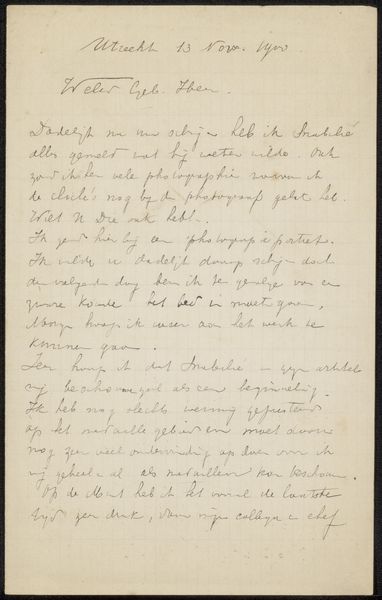 Utrecht 13 Nov. 1900
Weled Geb. Heer.
Dadelijk na uw schrijven heb ik
alles gemeld wat hij weten wilde. Ook
zond ik hem vele photographie waarvan ik
de cliché's nog bij de photograaf gelat heb.
Wilt U Die ook hebt.
Ik zend hierbij een photographie portret.
Ik wilde u dadelijk daarop schrijven doch
de volgenden dag ben ik ten gevolge van een
zware koude het bed in moet gaan,
Morgen hoop ik weer aan het werk te
kunnen gaan.
Zeer hoop ik dat in zijn artikel
mij beschouwen zal als een beginneling.
Ik heb nog slechts weinig gepresteerd
op het medaille gebied en moet daarin
nog zeer veel ondervinding op doen voor ik
mij geheel al als medailleur kan beschouwen.
Op de Munt heb ik het vooral de laatste
tijd zeer druk, daar mijn collega en chef